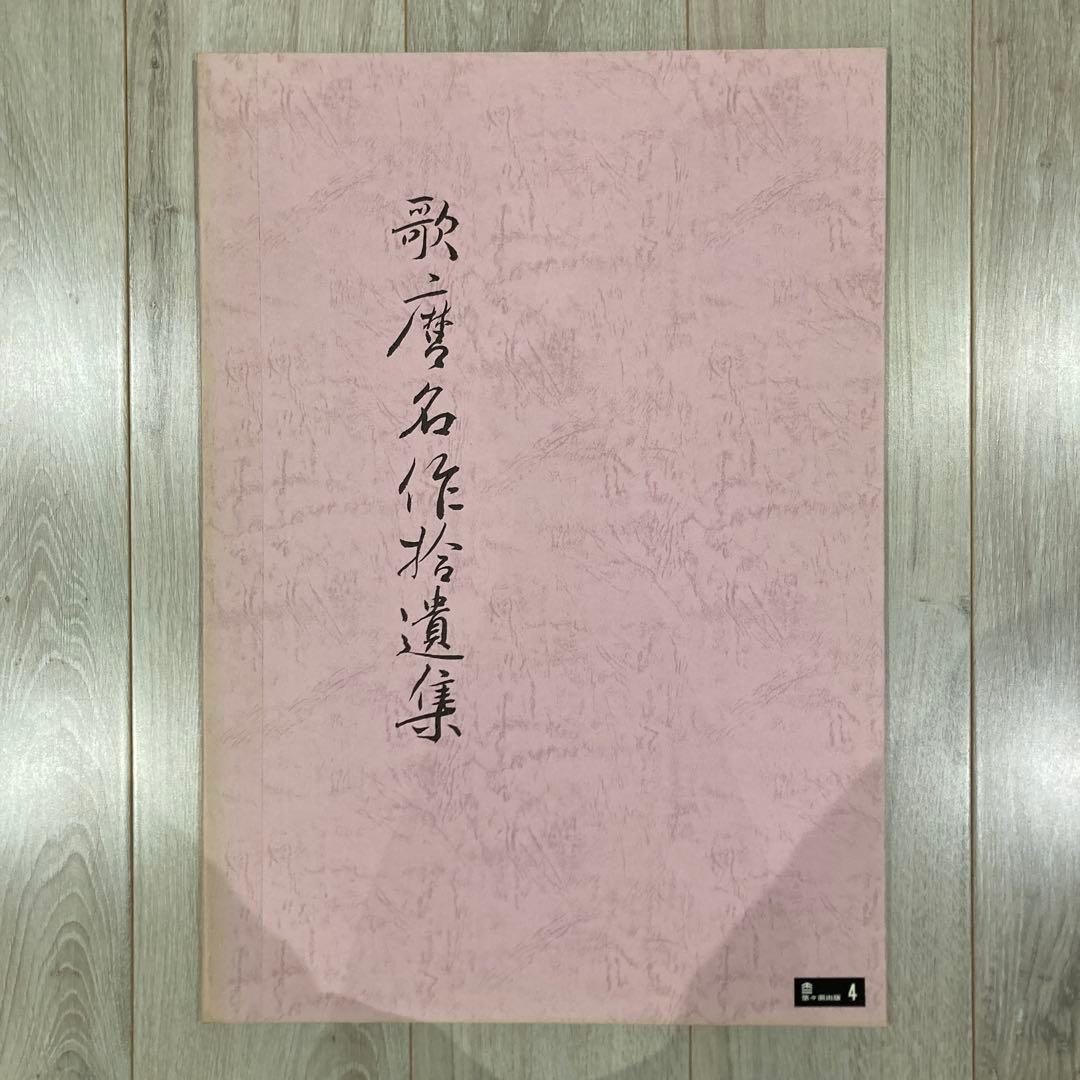 歌麿名作拾遺集
4